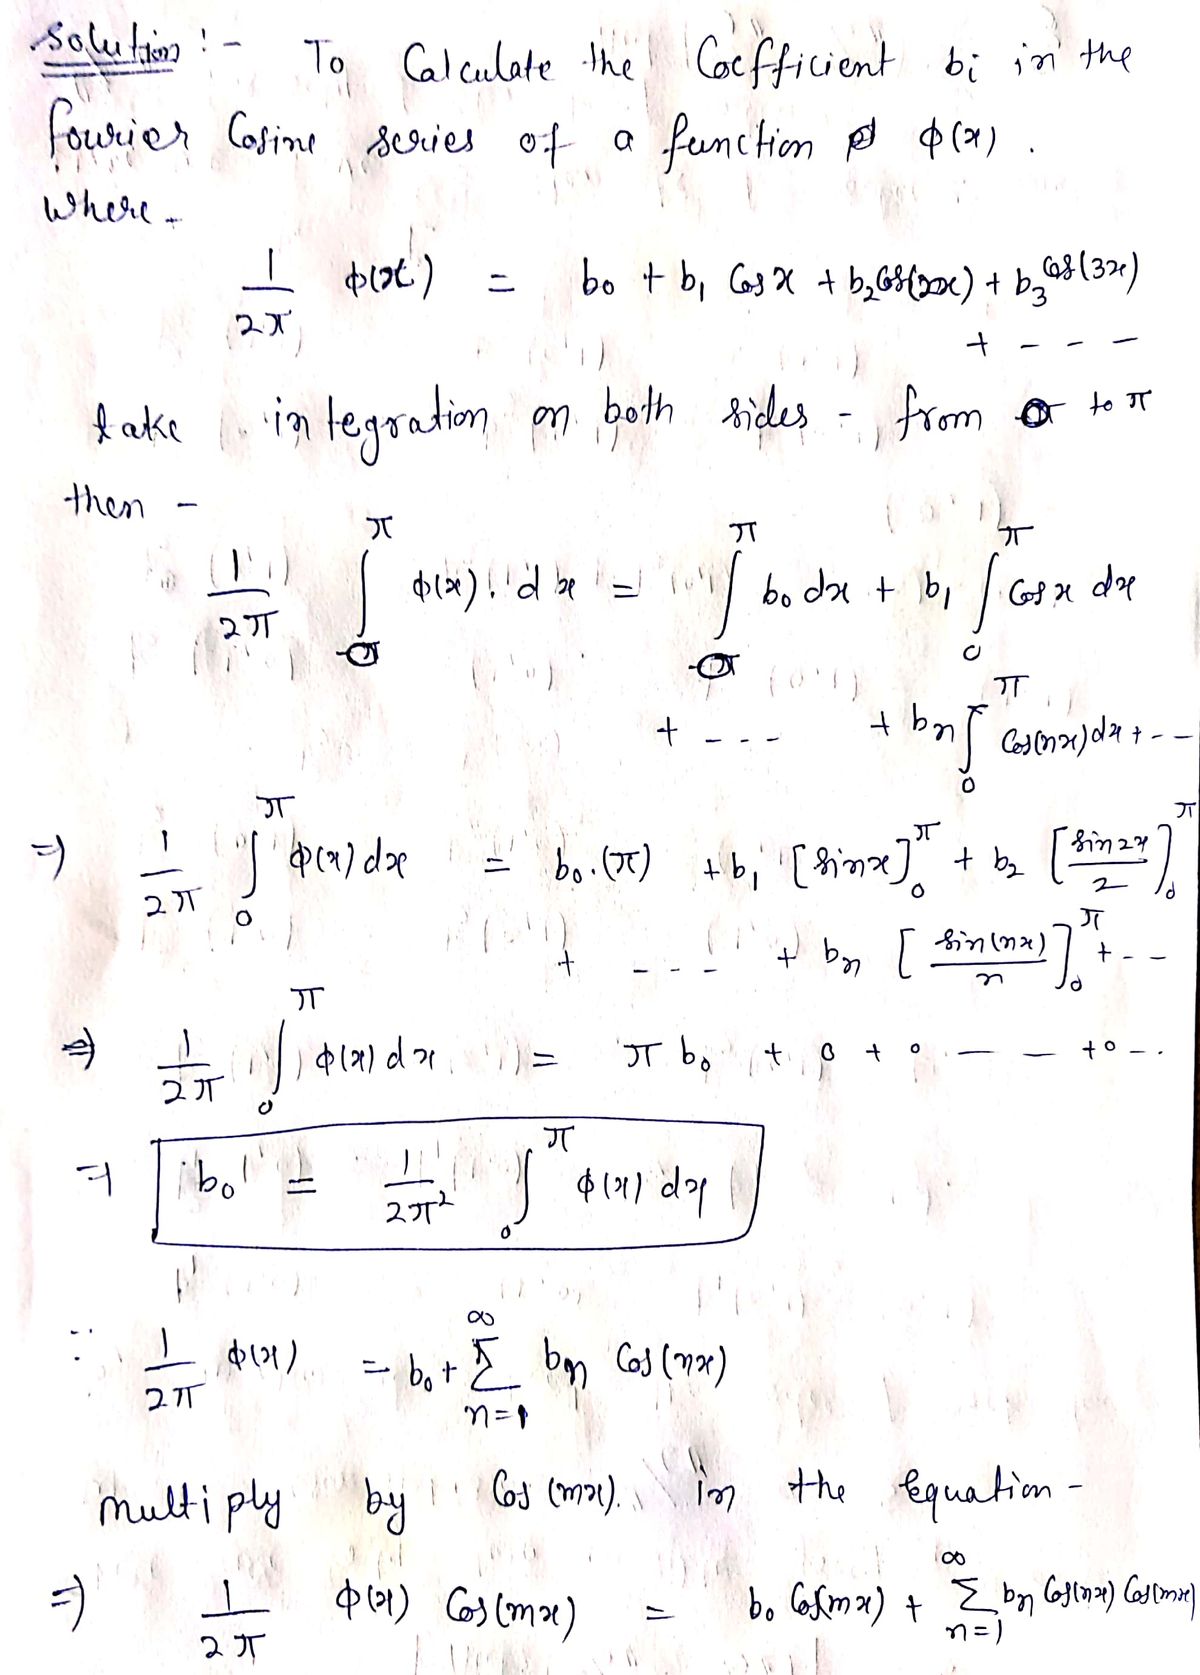 Solution :- To Calculate the Coefficient bi in the
fourier Cosine series of a function φ(x) .
Where -
1/2π φ(x) = b₀ + b₁ Cos x + b₂ Cos(2x) + b₃ Cos(3x)
+ - - -
take integration on both sides - from 0 to π
then -
1/2π ∫₀^π φ(x) . dx = ∫₀^π b₀ dx + b₁ ∫₀^π Cos x dx
+ - - - + bₙ ∫₀^π Cos(nx) dx + - -
⇒ 1/2π ∫₀^π φ(x) dx = b₀.(π) + b₁ [sin x]₀^π + b₂ [sin 2x / 2]₀^π
+ - - - + bₙ [sin(nx) / n]₀^π + - -
⇒ 1/2π ∫₀^π φ(x) dx = π b₀ + 0 + 0 - - + 0 - .
⇒ b₀ = 1/2π² ∫₀^π φ(x) dx
∵ 1/2π φ(x) = b₀ + Σ_{n=1}^∞ bₙ Cos(nx)
multiply by Cos(mx). in the Equation -
⇒ 1/2π φ(x) Cos(mx) = b₀ Cos(mx) + Σ_{n=1}^∞ bₙ Cos(nx) Cos(mx)